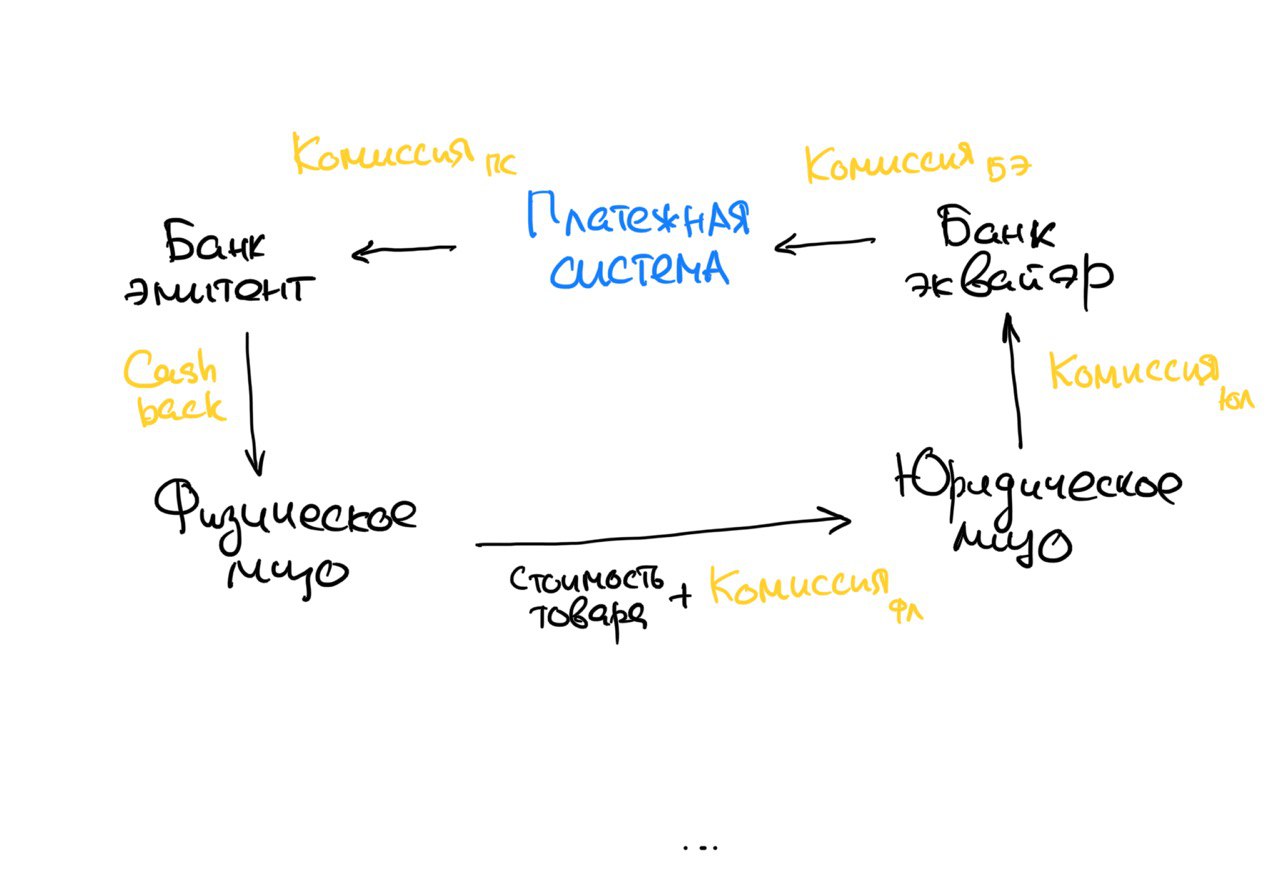 Комиссия ПС
Комиссия БЭ
Банк
эмитент
Платежная
система
Банк
эквайэр
Cash
back
Комиссия ЮЛ
Физическое
лицо
Юридическое
лицо
стоимость
товара + Комиссия ФЛ
...